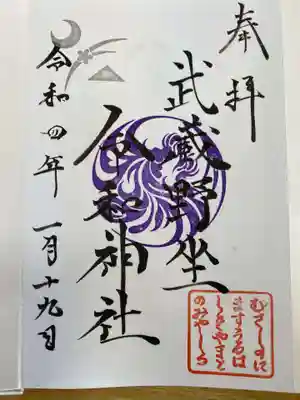 奉拝
武蔵野坐
令和神社
令和四年 一月十九日
むさしのに
ますうるは
しきやまと
のみやしろ